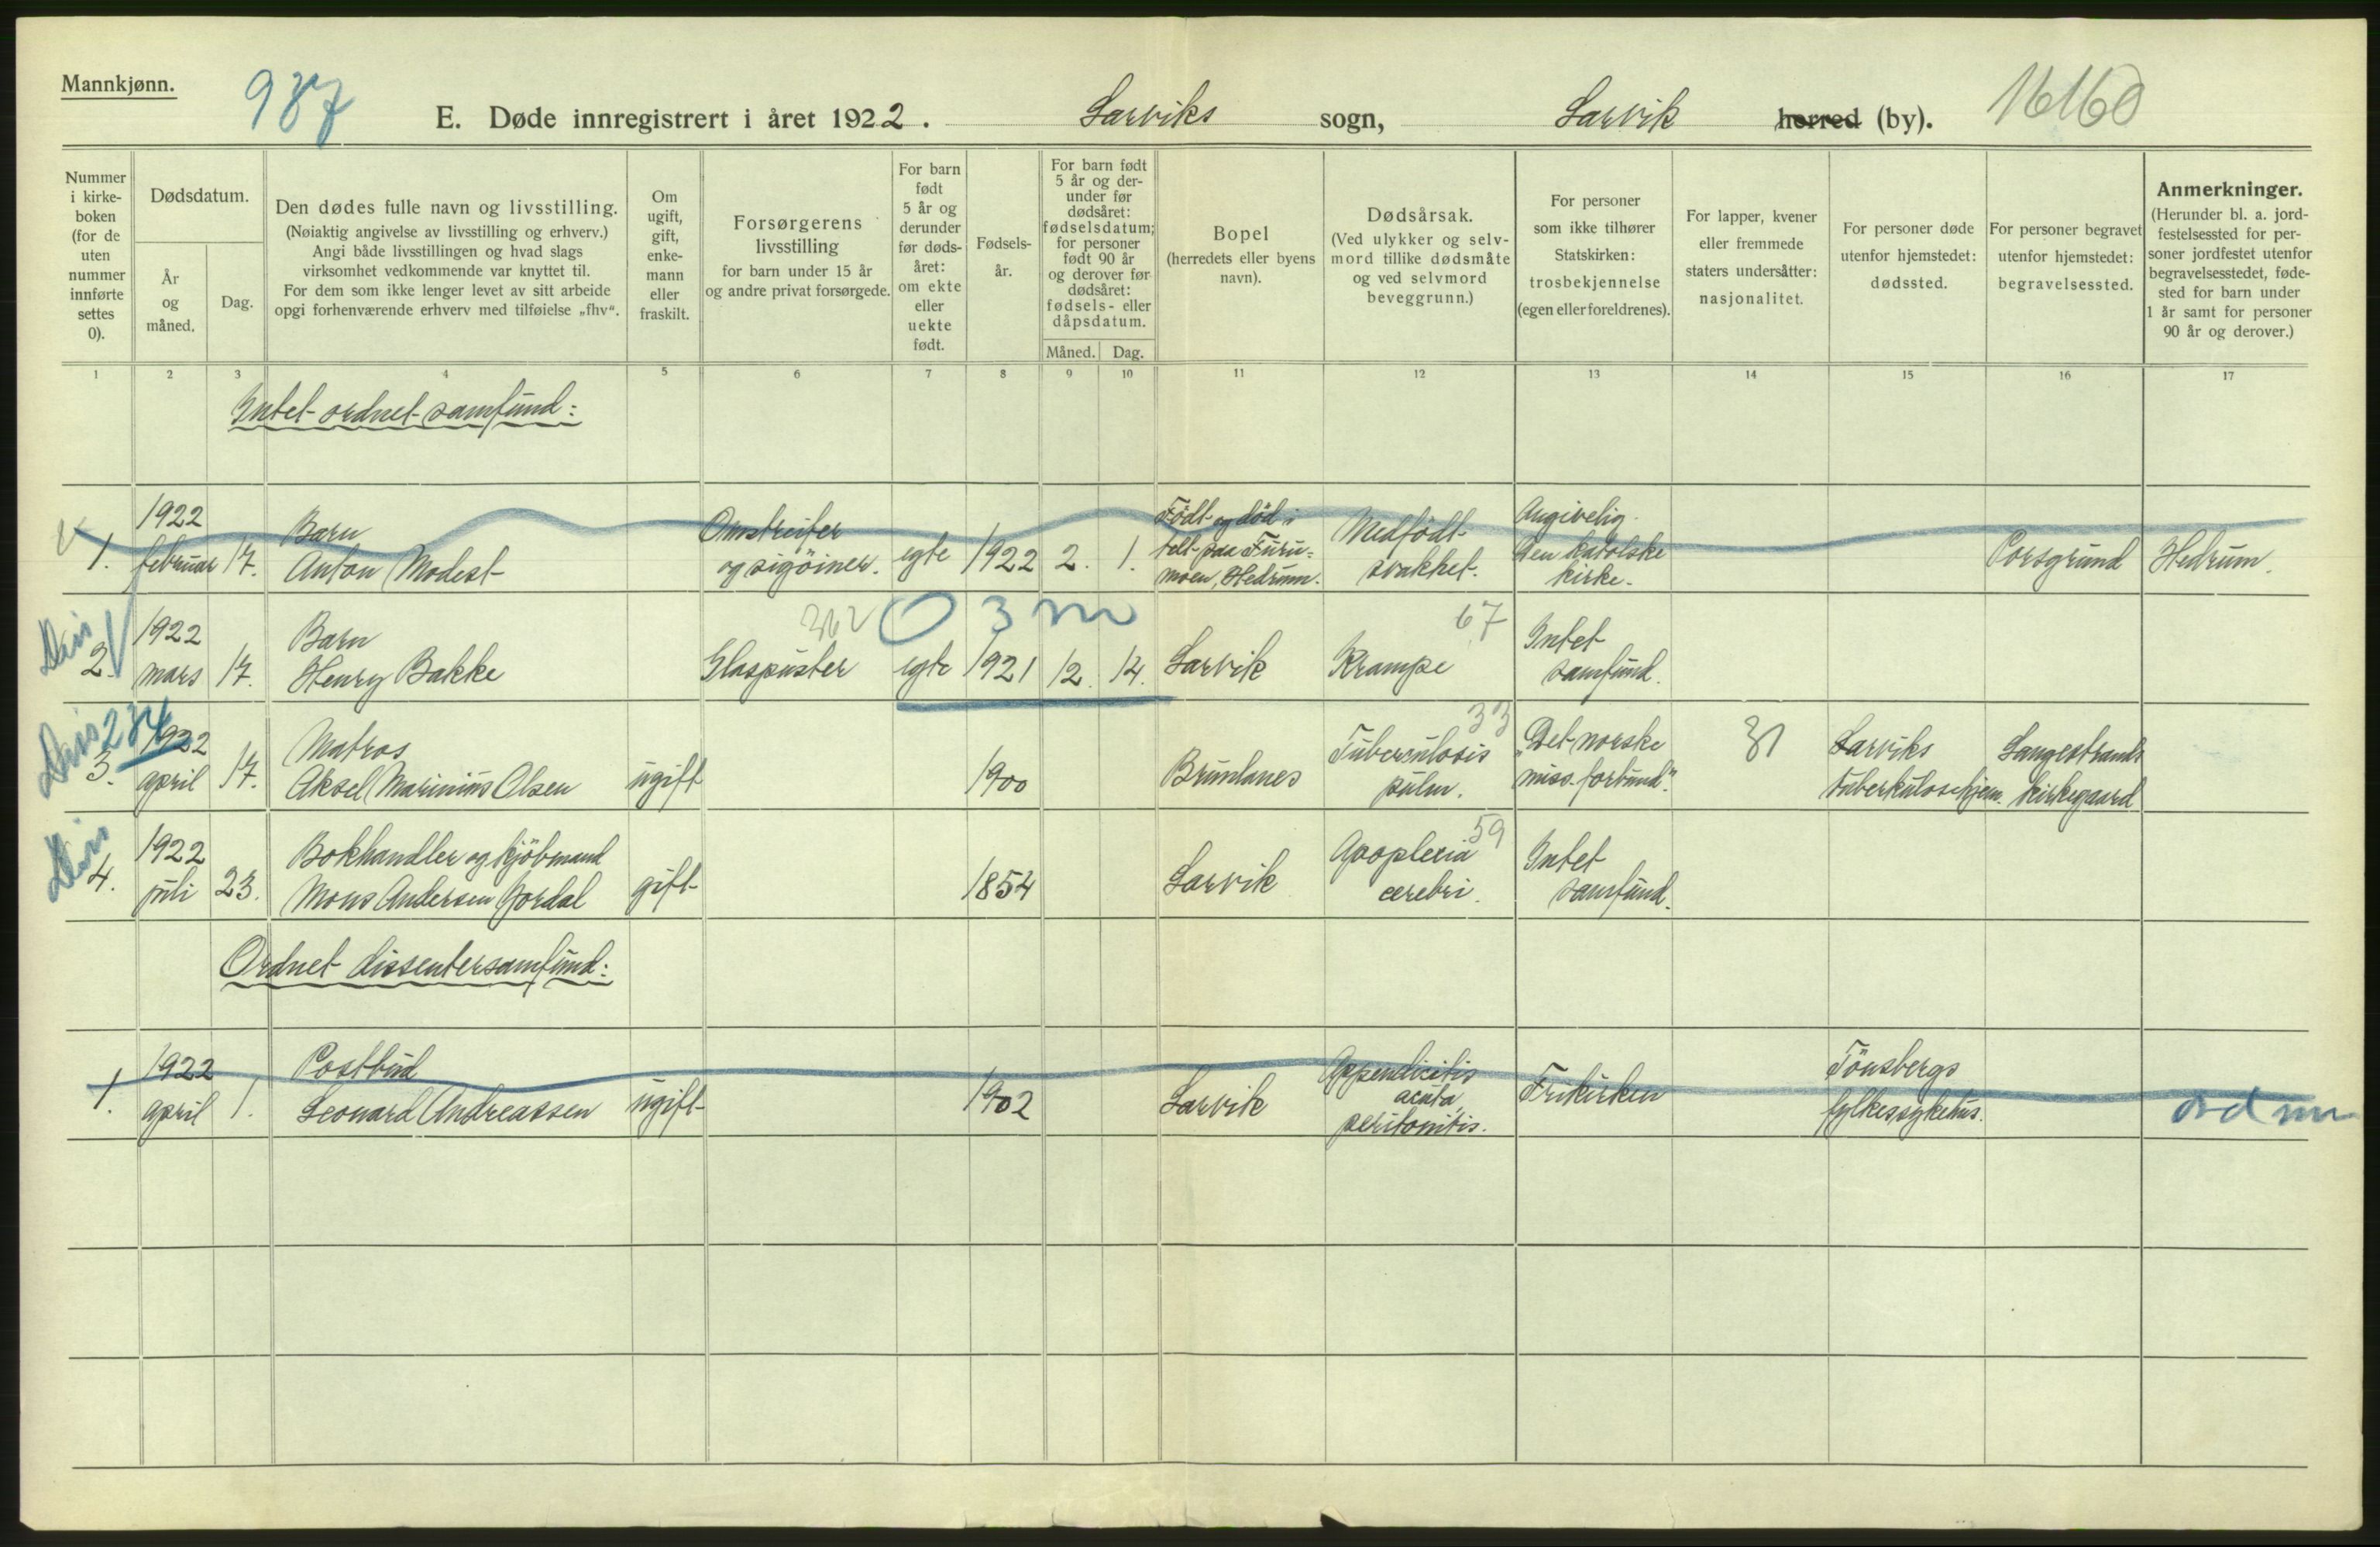 Mannkjønn.
987
E. Døde innregistrert i året 1922. Larviks sogn, Larvik herred (by). 16160
Nummer i kirke-boken (for de uten nummer innførte settes 0).
Dødsdatum.
År og måned.
Dag.
Den dødes fulle navn og livsstilling.
(Nøiaktig angivelse av livsstilling og erhverv.)
Angi både livsstillingen og hvad slags
virksomhet vedkommende var knyttet til.
For dem som ikke lenger levet av sitt arbeide
opgi forhenværende erhverv med tilføielse „fhv“.
Om ugift, gift, enke-mann eller fraskilt.
Forsørgerens livsstilling
for barn under 15 år
og andre privat forsørgede.
For barn født 5 år og derunder før døds-året: om ekte eller uekte født.
Fødsels-år.
For barn født 5 år og der-under før dødsåret: fødselsdatum; for personer født 90 år og derover før dødsåret: fødsels- eller dåpsdatum.
Måned. Dag.
Bopel
(herredets eller byens navn).
Dødsårsak.
(Ved ulykker og selv-mord tillike dødsmåte og ved selvmord beveggrunn.)
For personer som ikke tilhører Statskirken: trosbekjennelse (egen eller foreldrenes).
For lapper, kvener eller fremmede staters undersåtter: nasjonalitet.
For personer døde utenfor hjemstedet: dødssted.
For personer begravet utenfor hjemstedet: begravelsessted.
Anmerkninger.
(Herunder bl. a. jord-festelsessted for per-soner jordfestet utenfor begravelsesstedet, føde-sted for barn under 1 år samt for personer 90 år og derover.)
1 2 3 4 5 6 7 8 9 10 11 12 13 14 15 16 17
Intet ordnet samfund:
1. 1922 februar 17. Barn Anton Modest Omstreifer og sigöiner. egte 1922 2. 1. Född og död i telt paa Furu-moen, Hedrum. Medfödt svakhet. Angivelig den katolske kirke. Porsgrund Hedrum.
362 0 3 m 67
2. 1922 mars 17. Barn Henry Bakke Glaspuster egte 1921 12. 14. Larvik Krampe Intet samfund.
Diss 234 33
3. 1922 april 17. Matros Aksel Marinius Olsen ugift 1900 Brunlanes Tuberculosis pulm. „Det norske miss. forbund“. 31 Larviks tuberkulosehjem. Langestrands kirkegaard
Diss 59
4. 1922 juli 23. Bokhandler og kjöbmand Mons Andersen Jordal gift 1854 Larvik Apoplexia cerebri. Intet samfund.
Ordnet dissentersamfund:
1. 1922 april 1. Postbud Leonard Andreassen ugift 1902 Larvik Appendicitis acuta, peritonitis. Frikirken Tönsbergs fylkessykehus.